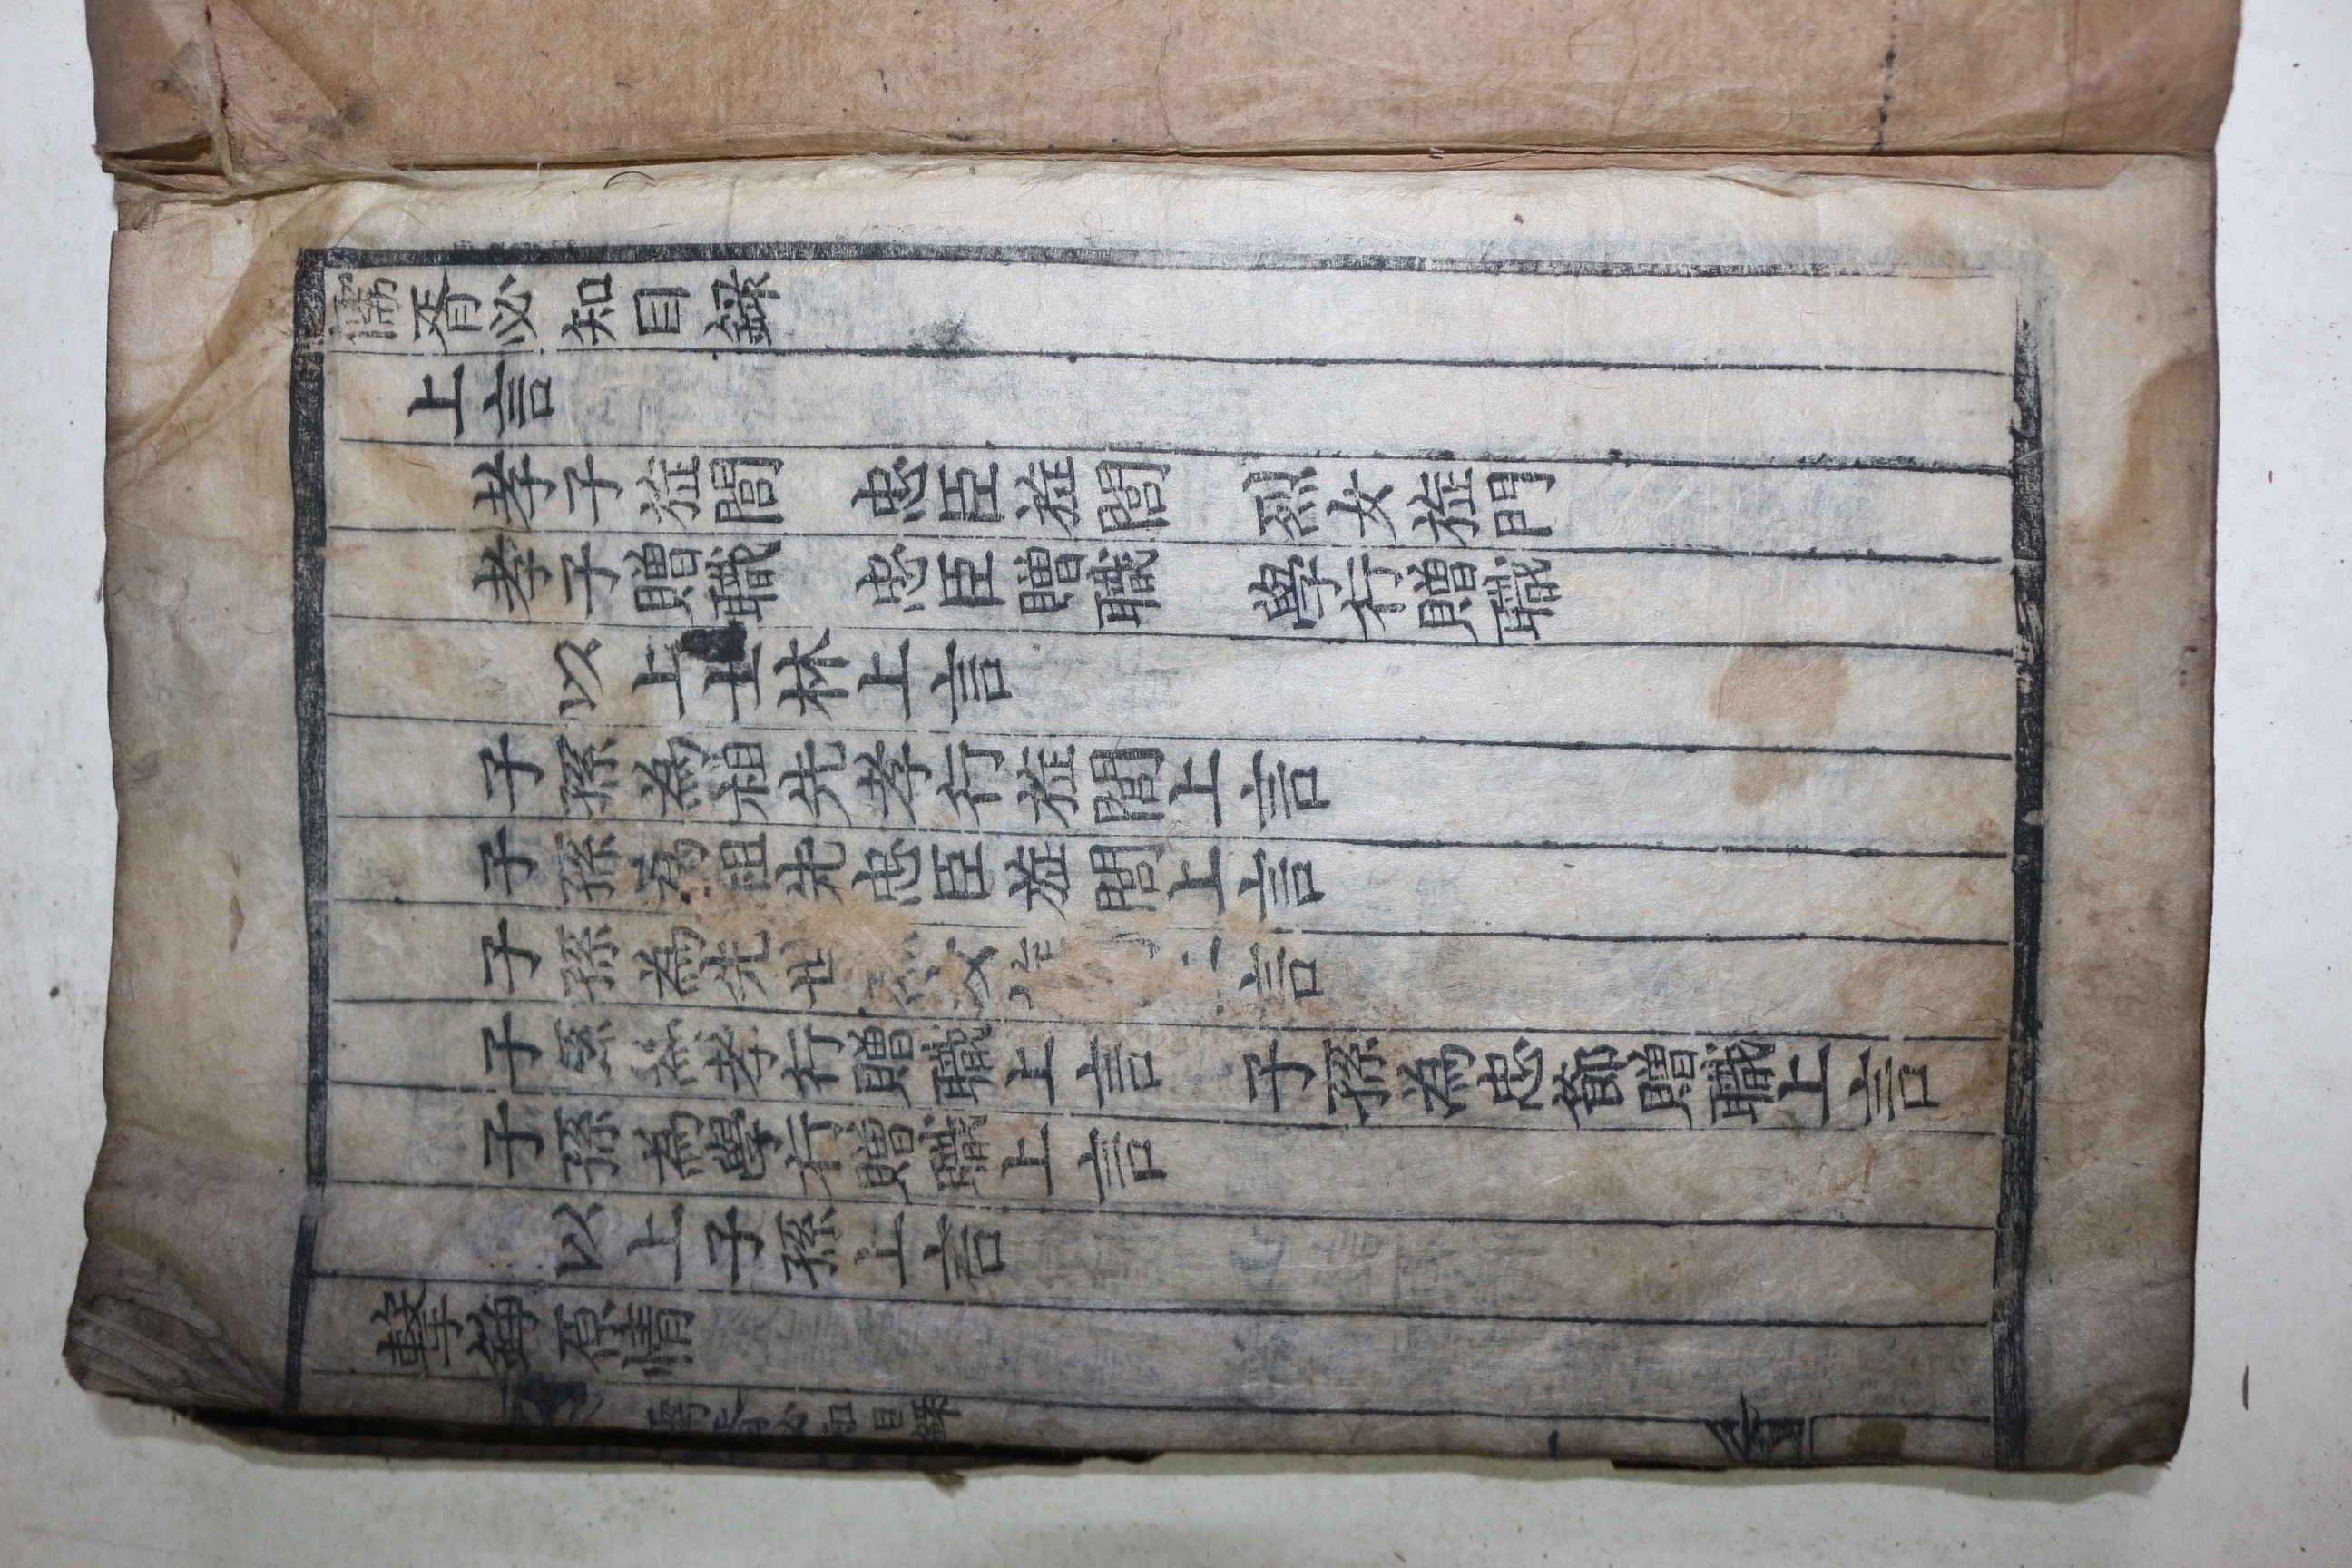 儒胥必知目録
上言
孝子旌閭 忠臣旌閭 烈女旌門
孝子贈職 忠臣贈職 學行贈職
以上士林上言
子孫為祖先孝行旌閭上言
子孫為祖先忠臣旌閭上言
子孫為先世烈女旌 上言
子孫為孝行贈職上言 子孫為忠節贈職上言
子孫為學行贈職上言
以上子孫上言
擊錚原情
儒胥必知目錄 一